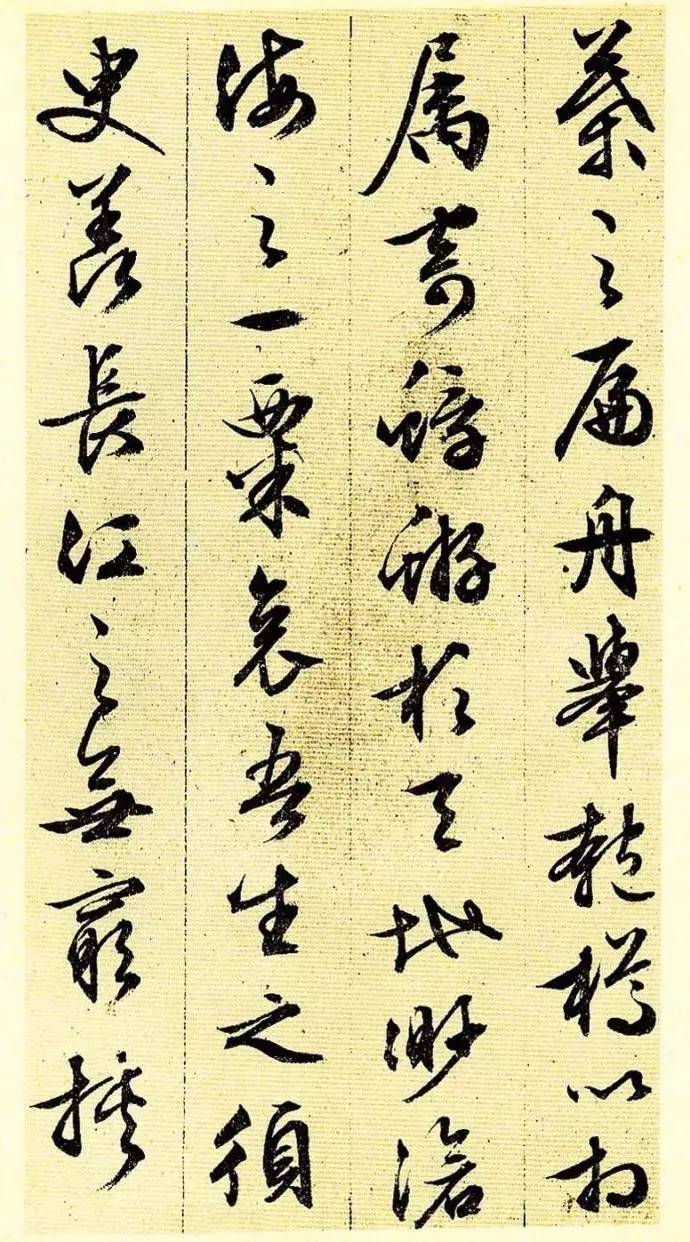 葉之扁舟舉匏樽以相
屬寄蜉蝣於天地渺滄
海之一粟哀吾生之須
臾羨長江之無窮挾